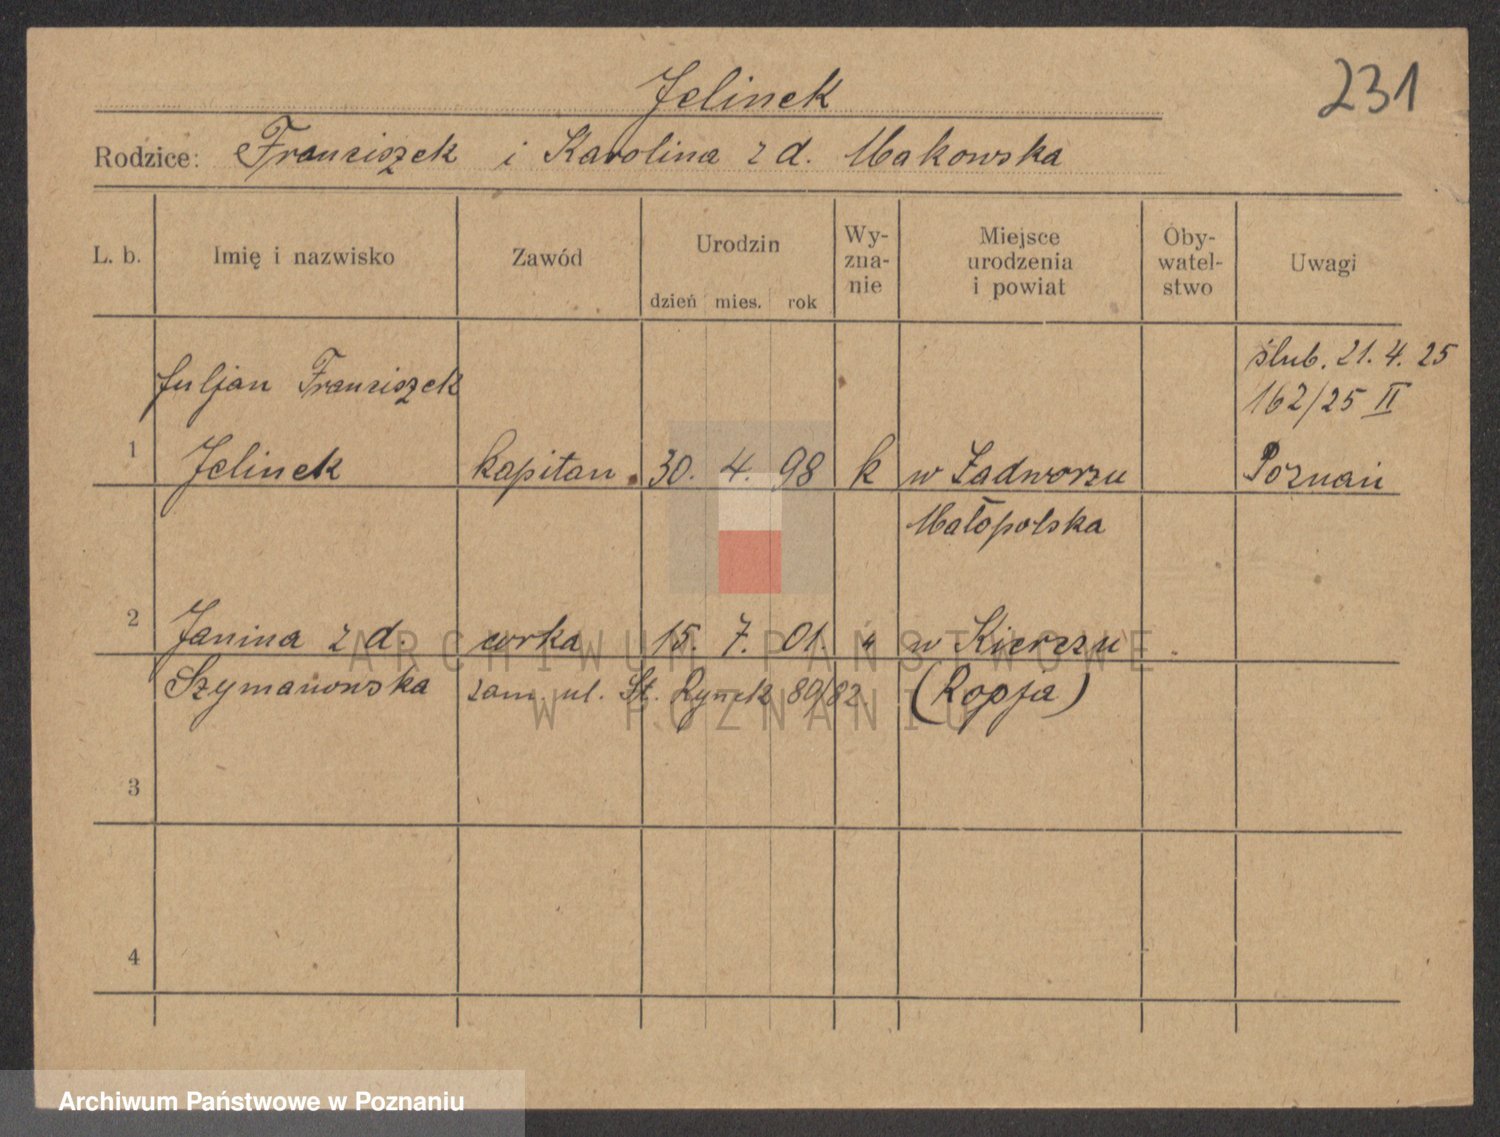 231
Jelinek
Rodzice: Franciszek i Karolina z d. Makowska
L. b.
Imię i nazwisko
Zawód
Urodzin
dzień mies. rok
Wy-
zna-
nie
Miejsce
urodzenia
i powiat
Oby-
watel-
stwo
Uwagi
ślub. 21. 4. 25
Juljan Franciszek
162/25 II
1 Jelinek kapitan 30. 4. 98 k w Zadworzu Poznań
Małopolska
2 Janina z d. córka 15. 7. 01. " w Kierzu
Szymanowska zam. ul. St. Rynek 80/82. (Ropja)
3
4
ARCHIWUM PAŃSTWOWE
W POZNANIU
Archiwum Państwowe w Poznaniu